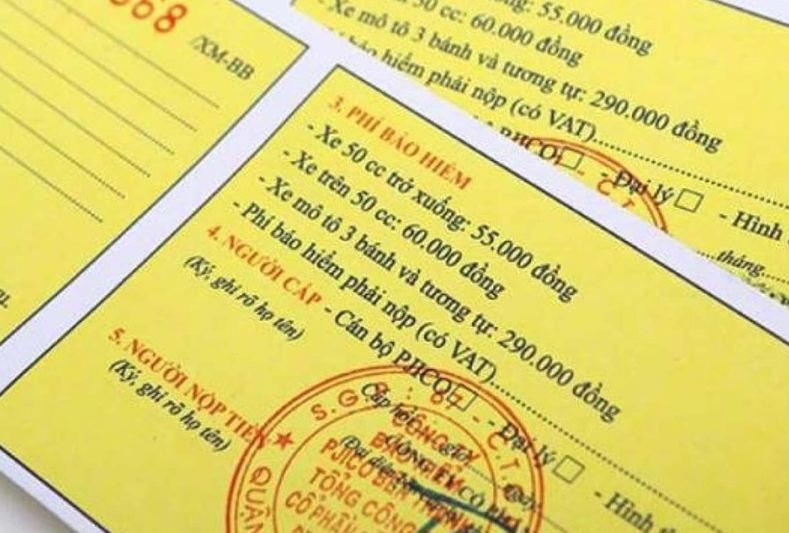 668 /XM-BB
- Xe trên 50 cc: 60.000 đồng
- Xe mô tô 3 bánh và tương tự: 290.000 đồng
bảo hiểm phải nộp (có VAT)
PJICO □ - Đại lý □ - Hình
tháng
3. PHÍ BẢO HIỂM
- Xe 50 cc trở xuống: 55.000 đồng
- Xe trên 50 cc: 60.000 đồng
- Xe mô tô 3 bánh và tương tự: 290.000 đồng
- Phí bảo hiểm phải nộp (có VAT)
4. NGƯỜI CẤP - Cán bộ PJICO □ - Đại lý □ - Hình
(Ký, ghi rõ họ tên)
Cấp hồi
5. NGƯỜI NỘP TIỀN
(Ký, ghi rõ họ tên)
CÔNG TY
BẢO HIỂM
PJICO BẾN THÀNH
TỔNG CÔNG
CỔ PHẦN
QUẬN